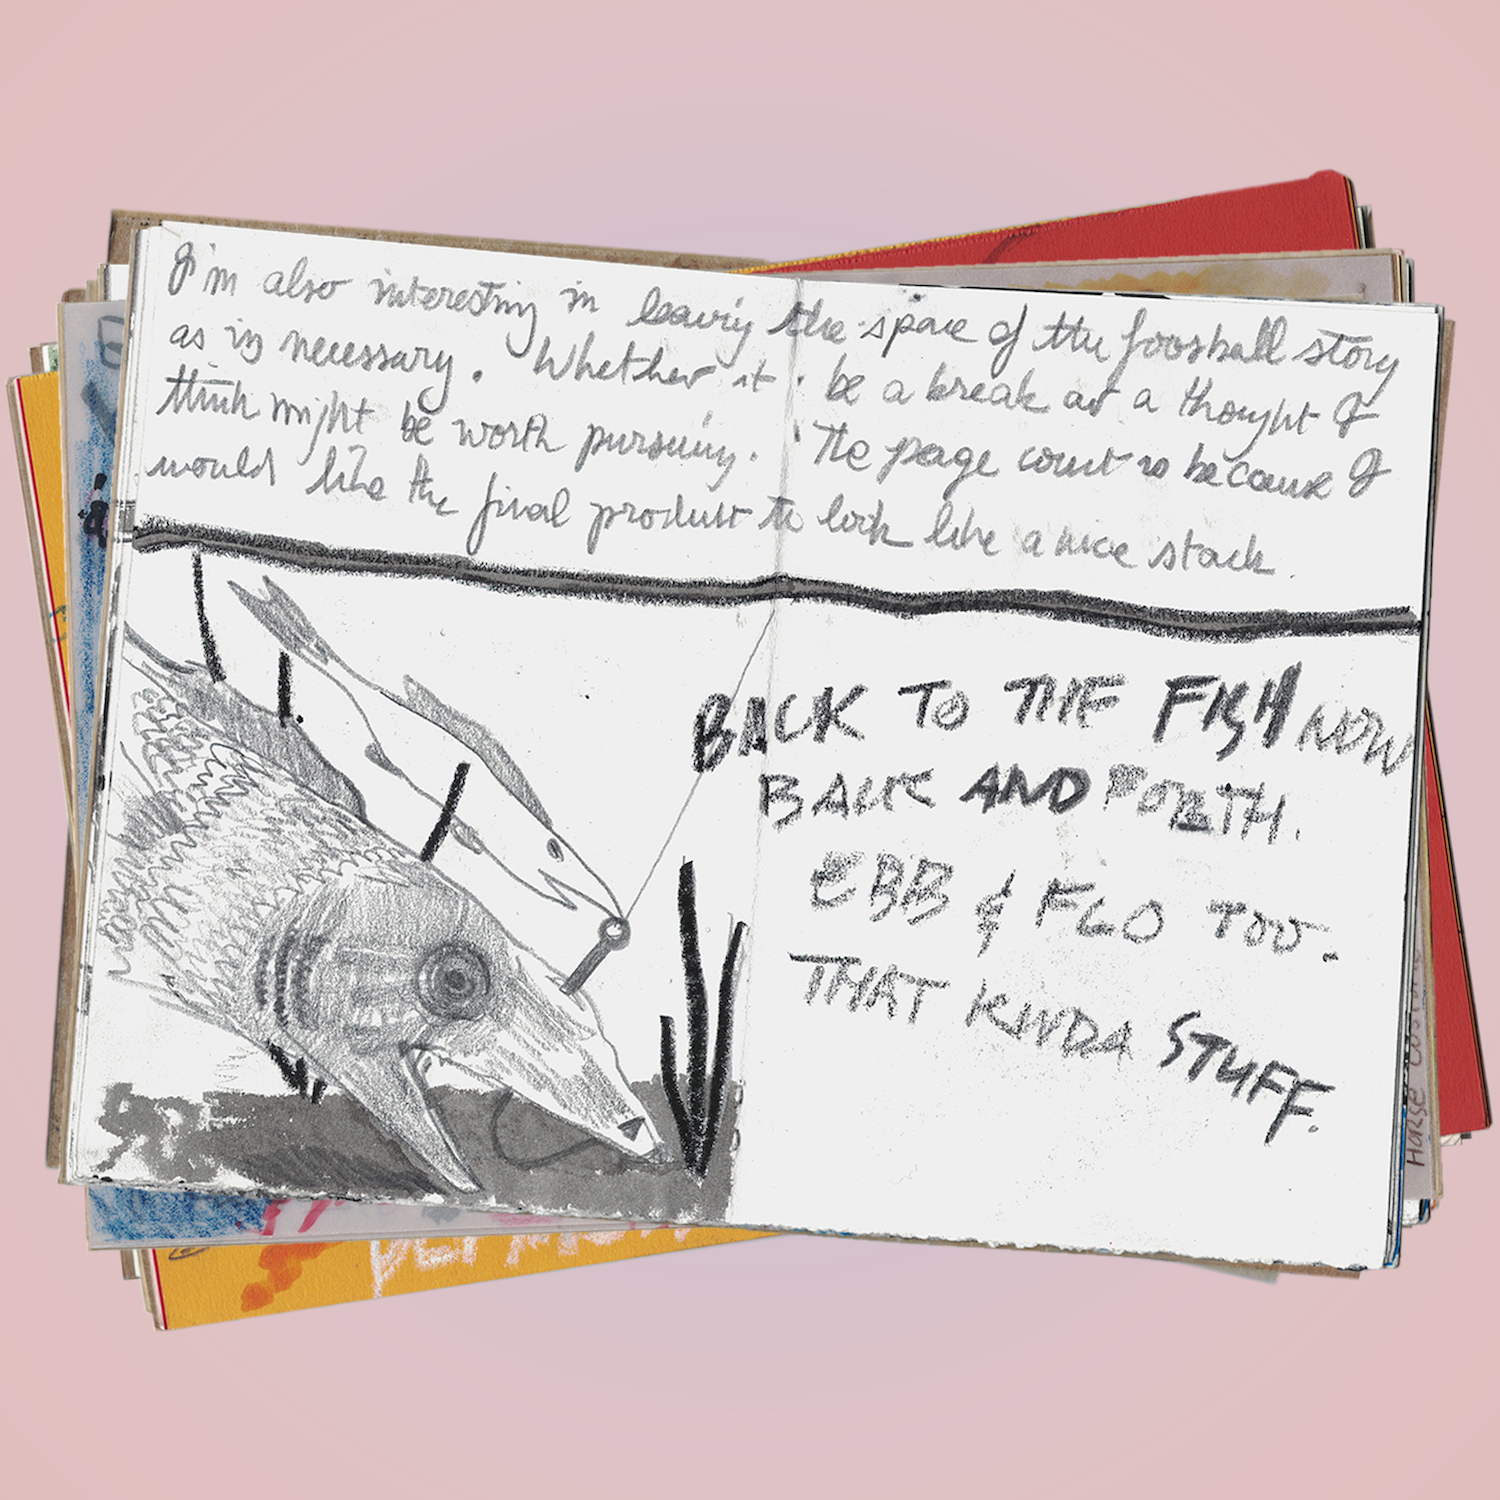 I'm also interesting in leaving the space of the foosball story
as is necessary. Whether it be a break or a thought I
think might be worth pursuing. The page count is because I
would like the final product to look like a nice stack.
BACK TO THE FISH NOW
BACK AND FORTH.
EBB & FLO TOO.
THAT KINDA STUFF.
HORSE